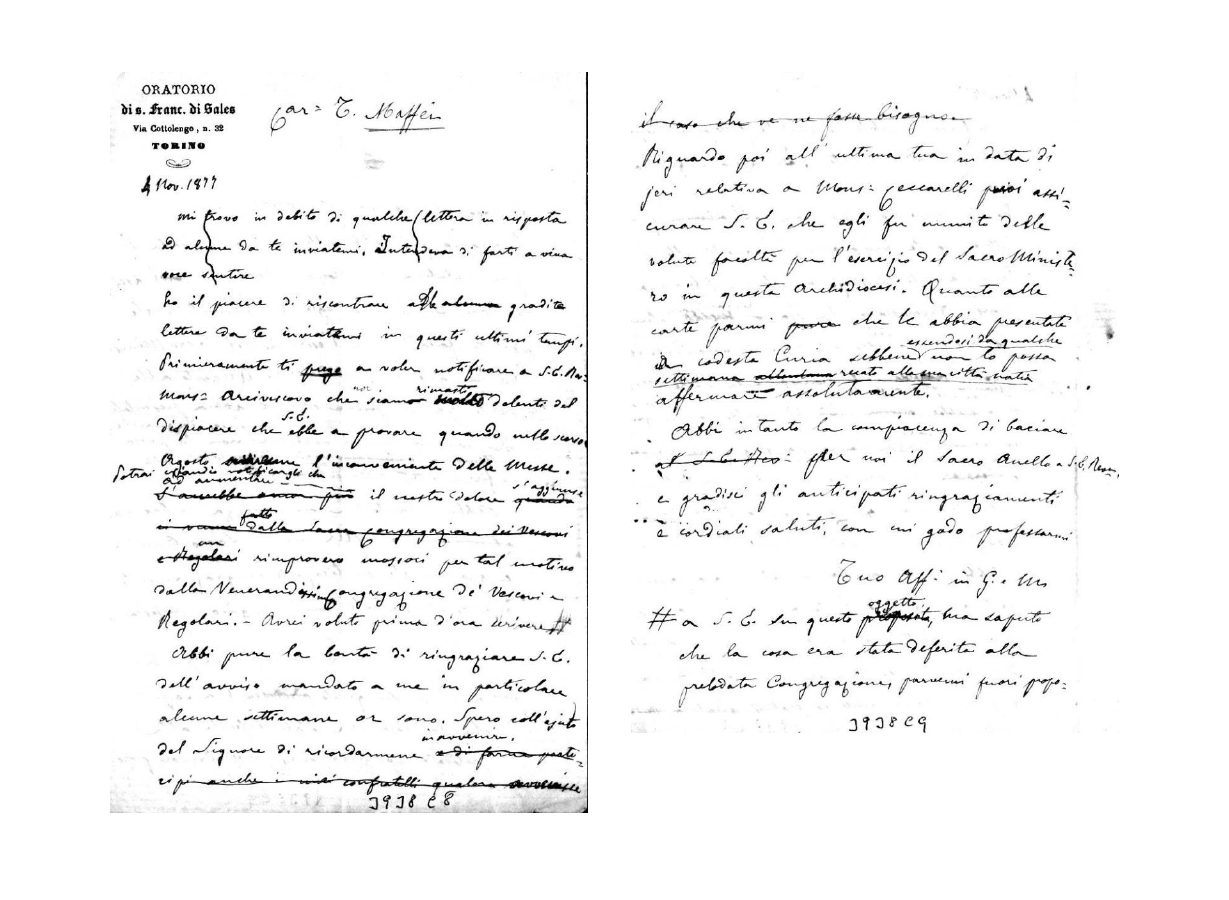 ORATORIO
di s. Franc. di Sales
Via Cottolengo, n. 32
TORINO
Car= T. Maffei
4 Nov. 1877
mi trovo in debito di qualche lettera in risposta
ad alcune da te inviatemi. Intendeva di farti a viva
voce sentire
ho il piacere di riscontrare alle alcune gradite
lettere da te inviatemi in questi ultimi tempi.
Primieramente ti prego a voler notificare a S. E. Rev=
Mons= Arcivescovo che noi siamo rimasti molto dolenti del
dispiacere che S. E. ebbe a provare quando nello scorso
Agosto avvenne l'inconveniente delle Messe.
Potrai eziandio notificargli che
ad aumentare
s'aggiunse
S'accrebbe ancor più il nostro dolore quando
fatto
in venne dalla Sacra Congregazione dei Vescovi
un
e Regolari rimprovero mossoci per tal motivo
dalla Venerandissima Congregazione de' Vescovi e
Regolari. - Avrei voluto prima d'ora scrivere #
Abbi pure la bontà di ringraziare S. E.
dell'avviso mandato a me in particolare
alcune settimane or sono. Spero coll'ajuto
in avvenire.
del Signore di ricordarmene e di farne parte=
cipi anche i miei confratelli qualora avvenisse
J9J8 C8
il caso che ve ne fosse bisogno.
Riguardo poi all'ultima tua in data di
jeri relativa a Mons= Ceccarelli puoi assi=
curare S. E. che egli fu munito delle
volute facoltà per l'esercizio del Sacro Ministe=
ro in questa Archidiocesi. Quanto alle
carte parmi pure che le abbia presentate
essendosi da qualche
a codesta Curia sebbene non lo possa
settimana recato alla sua città natia
affermare assolutamente.
Abbi intanto la compiacenza di baciare
per noi il Sacro Anello a S. E. Rev.
e gradisci gli anticipati ringraziamenti
e cordiali saluti, con cui godo professarmi
Tuo Aff. in G. e M.
oggetto
# a S. E. su questo proposito, ma saputo
che la cosa era stata deferita alla
prelodata Congregazione, parvemi fuori propo=
J9J8 C9